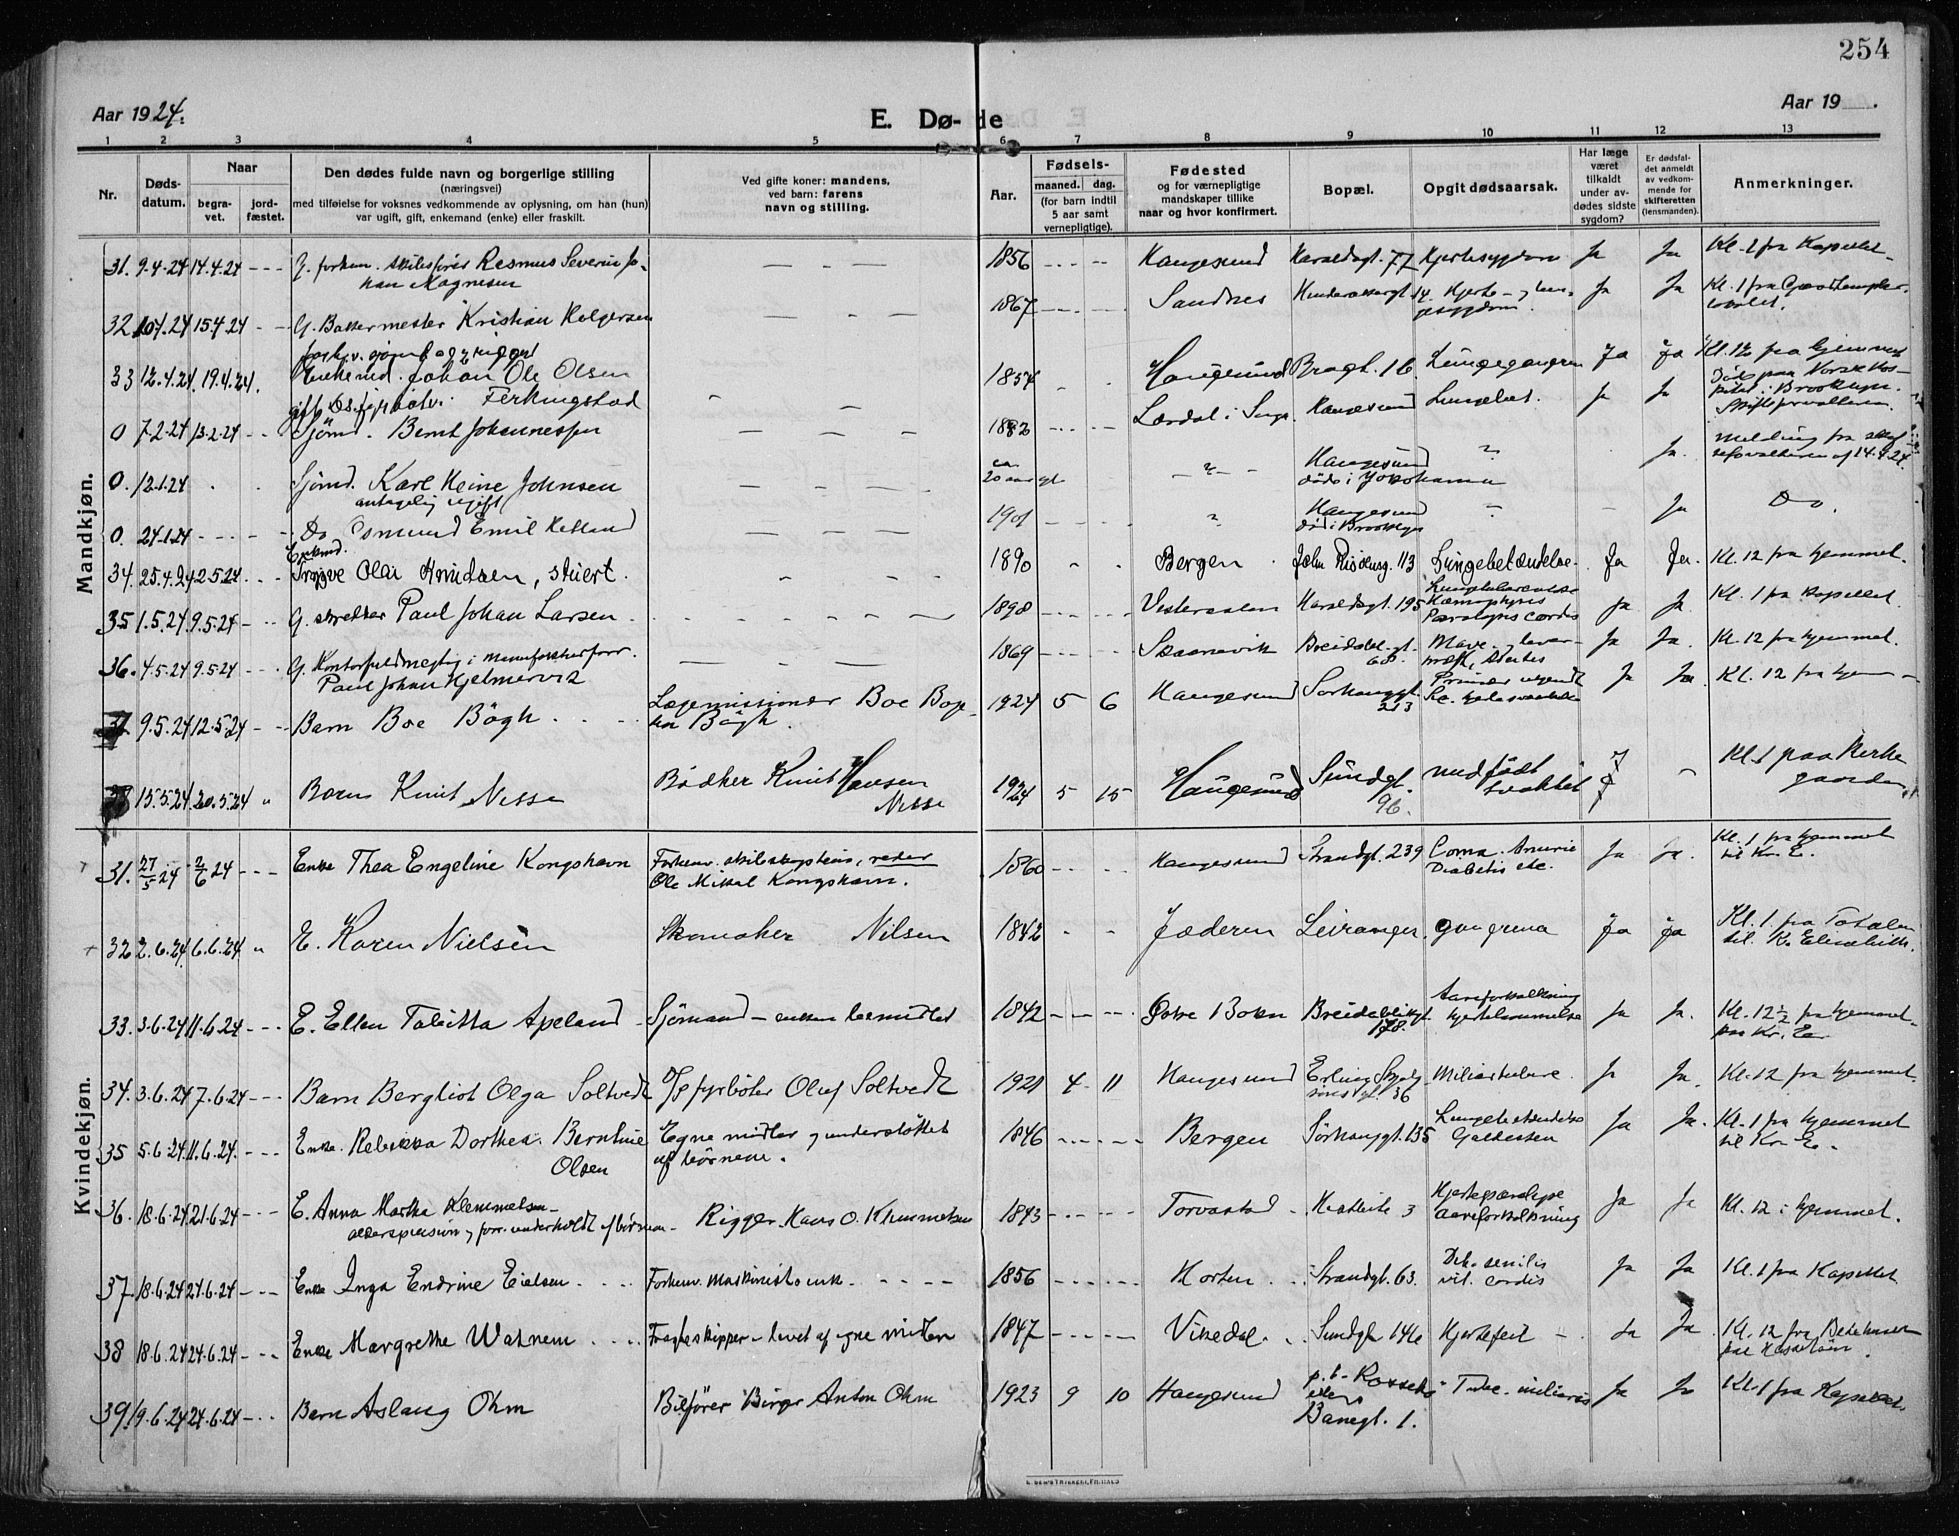 254
Aar 1924.
E. Dø- de
Aar 19 .
1 2 3 4 5 6 7 8 9 10 11 12 13
Nr.
Døds-
datum.
Naar
begra-
vet.
jord-
fæstet.
Den dødes fulde navn og borgerlige stilling
(næringsvei)
med tilføielse for voksnes vedkommende av oplysning, om han (hun)
var ugift, gift, enkemand (enke) eller fraskilt.
Ved gifte koner: mandens,
ved barn: farens
navn og stilling.
Aar.
Fødsels-
maaned. dag.
(for barn indtil
5 aar samt
vernepligtige).
Fødested
og for værnepligtige
mandskaper tillike
naar og hvor konfirmert.
Bopæl.
Opgit dødsaarsak.
Har læge
været
tilkaldt
under av-
dødes sidste
sygdom?
Er dødsfal-
det anmeldt
av vedkom-
mende for
skifteretten
(lensmanden).
Anmerkninger.
Mandkjøn.
31. 9.4.24 14.4.24 - - - G. forhen. skibsfører Rasmus Severin Jo-
han Magnesen — — — 1856 - - - - - Haugesund Haraldsgt. 77 Hjertesygdom Ja Ja Kl. 1 fra Kapellet.
32 10.4.24 15.4.24 - - G. Bakermester Kristian Helgesen — — — 1867 Sandnes 14. Hjerte- Ja Ja Kl. 1 fra Goodtemplar-
lokalet.
33 12.4.24. 19.4.24. Enkemd. Johan Ole Olsen
Ferkingstad 1854 Haugesund Bragt. 16 Lungegangren Ja Ja Kl. 12 fra hjemmet
0 7.2.24 13.2.24 - - Sjømd. Bernt Johannessen — — — 1882 Lærdal i Sogn Haugesund Ja Ja Døds paa Norske Hos-
pital i Brooklyn.
Skifteforvalteren.
0. 12.1.24 Sjømd. Karl Heine Johnsen
antagelig ugift — — — ca
20 aar gl. - " - Haugesund
døde i Yokohama " Ja. Melding fra skif-
teforvalteren af 14.4.24
0. 24.1.24 - - - - Do Osmund Emil Helland — — — 1901 " Haugesund
død i Brooklyn - - Ja Do.
34. 25.4.24 2.5.24 - - - Enkemd.
Trygve Olai Amundsen, stuert. 1890 Bergen Lungebetændelse. Ja Ja. Kl. 12 fra hjemmet.
35 1.5.24 9.5.24 - - - G. Paul Johan Larsen. 1898 Vesteraalen Haraldsgt. 195 Hæmoptysis
Paralysis cordis Ja Ja. Kl. 1 fra kapellet.
36. 4.5.24 9.5.24 - - . G. Kontorfuldmegtig i manufakturforr.
Paul Johan Hjelmervik — — — 1869 Skaanevik 68. Mave- lever- Ja Ja. Kl. 12 fra hjemmet.
37 9.5.24 12.5.24 - - - Barn Boe Bögh Lægemissionær Boe
Bögh. 1924 5 6 Haugesund Sørhauggt.
213 Ja Ja Kl. 12 fra hjem-
38 15.5.24. 20.5.24 " Barn Knut Nesse Bødker Knut Hansen
Nesse 1924 5 15 Haugesund Sundgt.
96. medfødt
svakhet - Kl. 1 paa Kirke
gaarden.
Kvindekjøn.
31. 27/5 24 2/6 24 - - - Enke Thea Engeline Kongshavn Forhenv. skibskaptein, reder
Ole Mikal Kongshavn. 1860 - - - - - Haugesund Strandgt. 239 Coma. Anurie
Diabetis etc. Ja Ja. Kl. 1 fra hjemmet
til Kr. E.
32 2.6.24. 6.6.24 " E. Karen Nielsen Skomaker Nilsen 1842 Jæderen Leiranger. gangrena Ja Ja Kl. 1 fra
til K. Elisabeth.
33. 3.6.24 11.6.24 - - - E. Ellen Tabitta Apeland Sjømand - enken bemidlet 1842 - - - Østre Bokn Breidablikgt.
178. Aareforkalkning
hjertelammelse Ja Ja. Kl. 12½ fra hjemmet
paa Kr. E.
34. 3.6.24 7.6.24 - - - Barn Bergliot Olga Soltvedt D/S fyrbøter Oluf Soltvedt 1921 4 11 Haugesund Erling Skjalg-
sons gt. 36 Miliærtuberc. Ja Ja. Kl. 12 fra hjemmet.
35 5.6.24. 11.6.24. - - - Enke. Rebekka Dorthea Berntine
Olsen Egne midler og understøttet
af børnene. 1846 Bergen Sørhauggt. 135 Lungebetændelse
Galdesten Ja Ja. Kl. 1 fra hjemmet
til Kr. E.
36. 18.6.24 21.6.24 - - - E. Anna Martha Klemmetsen -
alderspension, forr. underholdt af børnene - Rigger Hans O. Klemmetsen 1843 Torvastad 3 Hjerteparalyse
Aareforkalkning Ja Ja Kl. 12 i hjemmet.
37. 18.6.24 24.6.24 - - - Enke Inga Endrine Eielsen Forhenv. Maskinist enk. 1856 Horten Strandgt. 63. Deb. senilis
vit. cordis Ja Ja Kl. 1 fra Kapellet
38 18.6.24 24.6.24 - - - Enke Margrethe Watnem Fragteskipper - levet af egne midler 1847 Vikedal Sundgt. 146 Hjertefeil - Ja Ja Kl. 12 fra Bedehuset
39 19.6.24 24.6.24 - - - Barn Aslaug Ohm Bilfører Birger Anton Ohm 1923 9 10 Haugesund
Banegt. 1. Tube. miliaris Ja Ja Kl. 1 fra Kapellet.